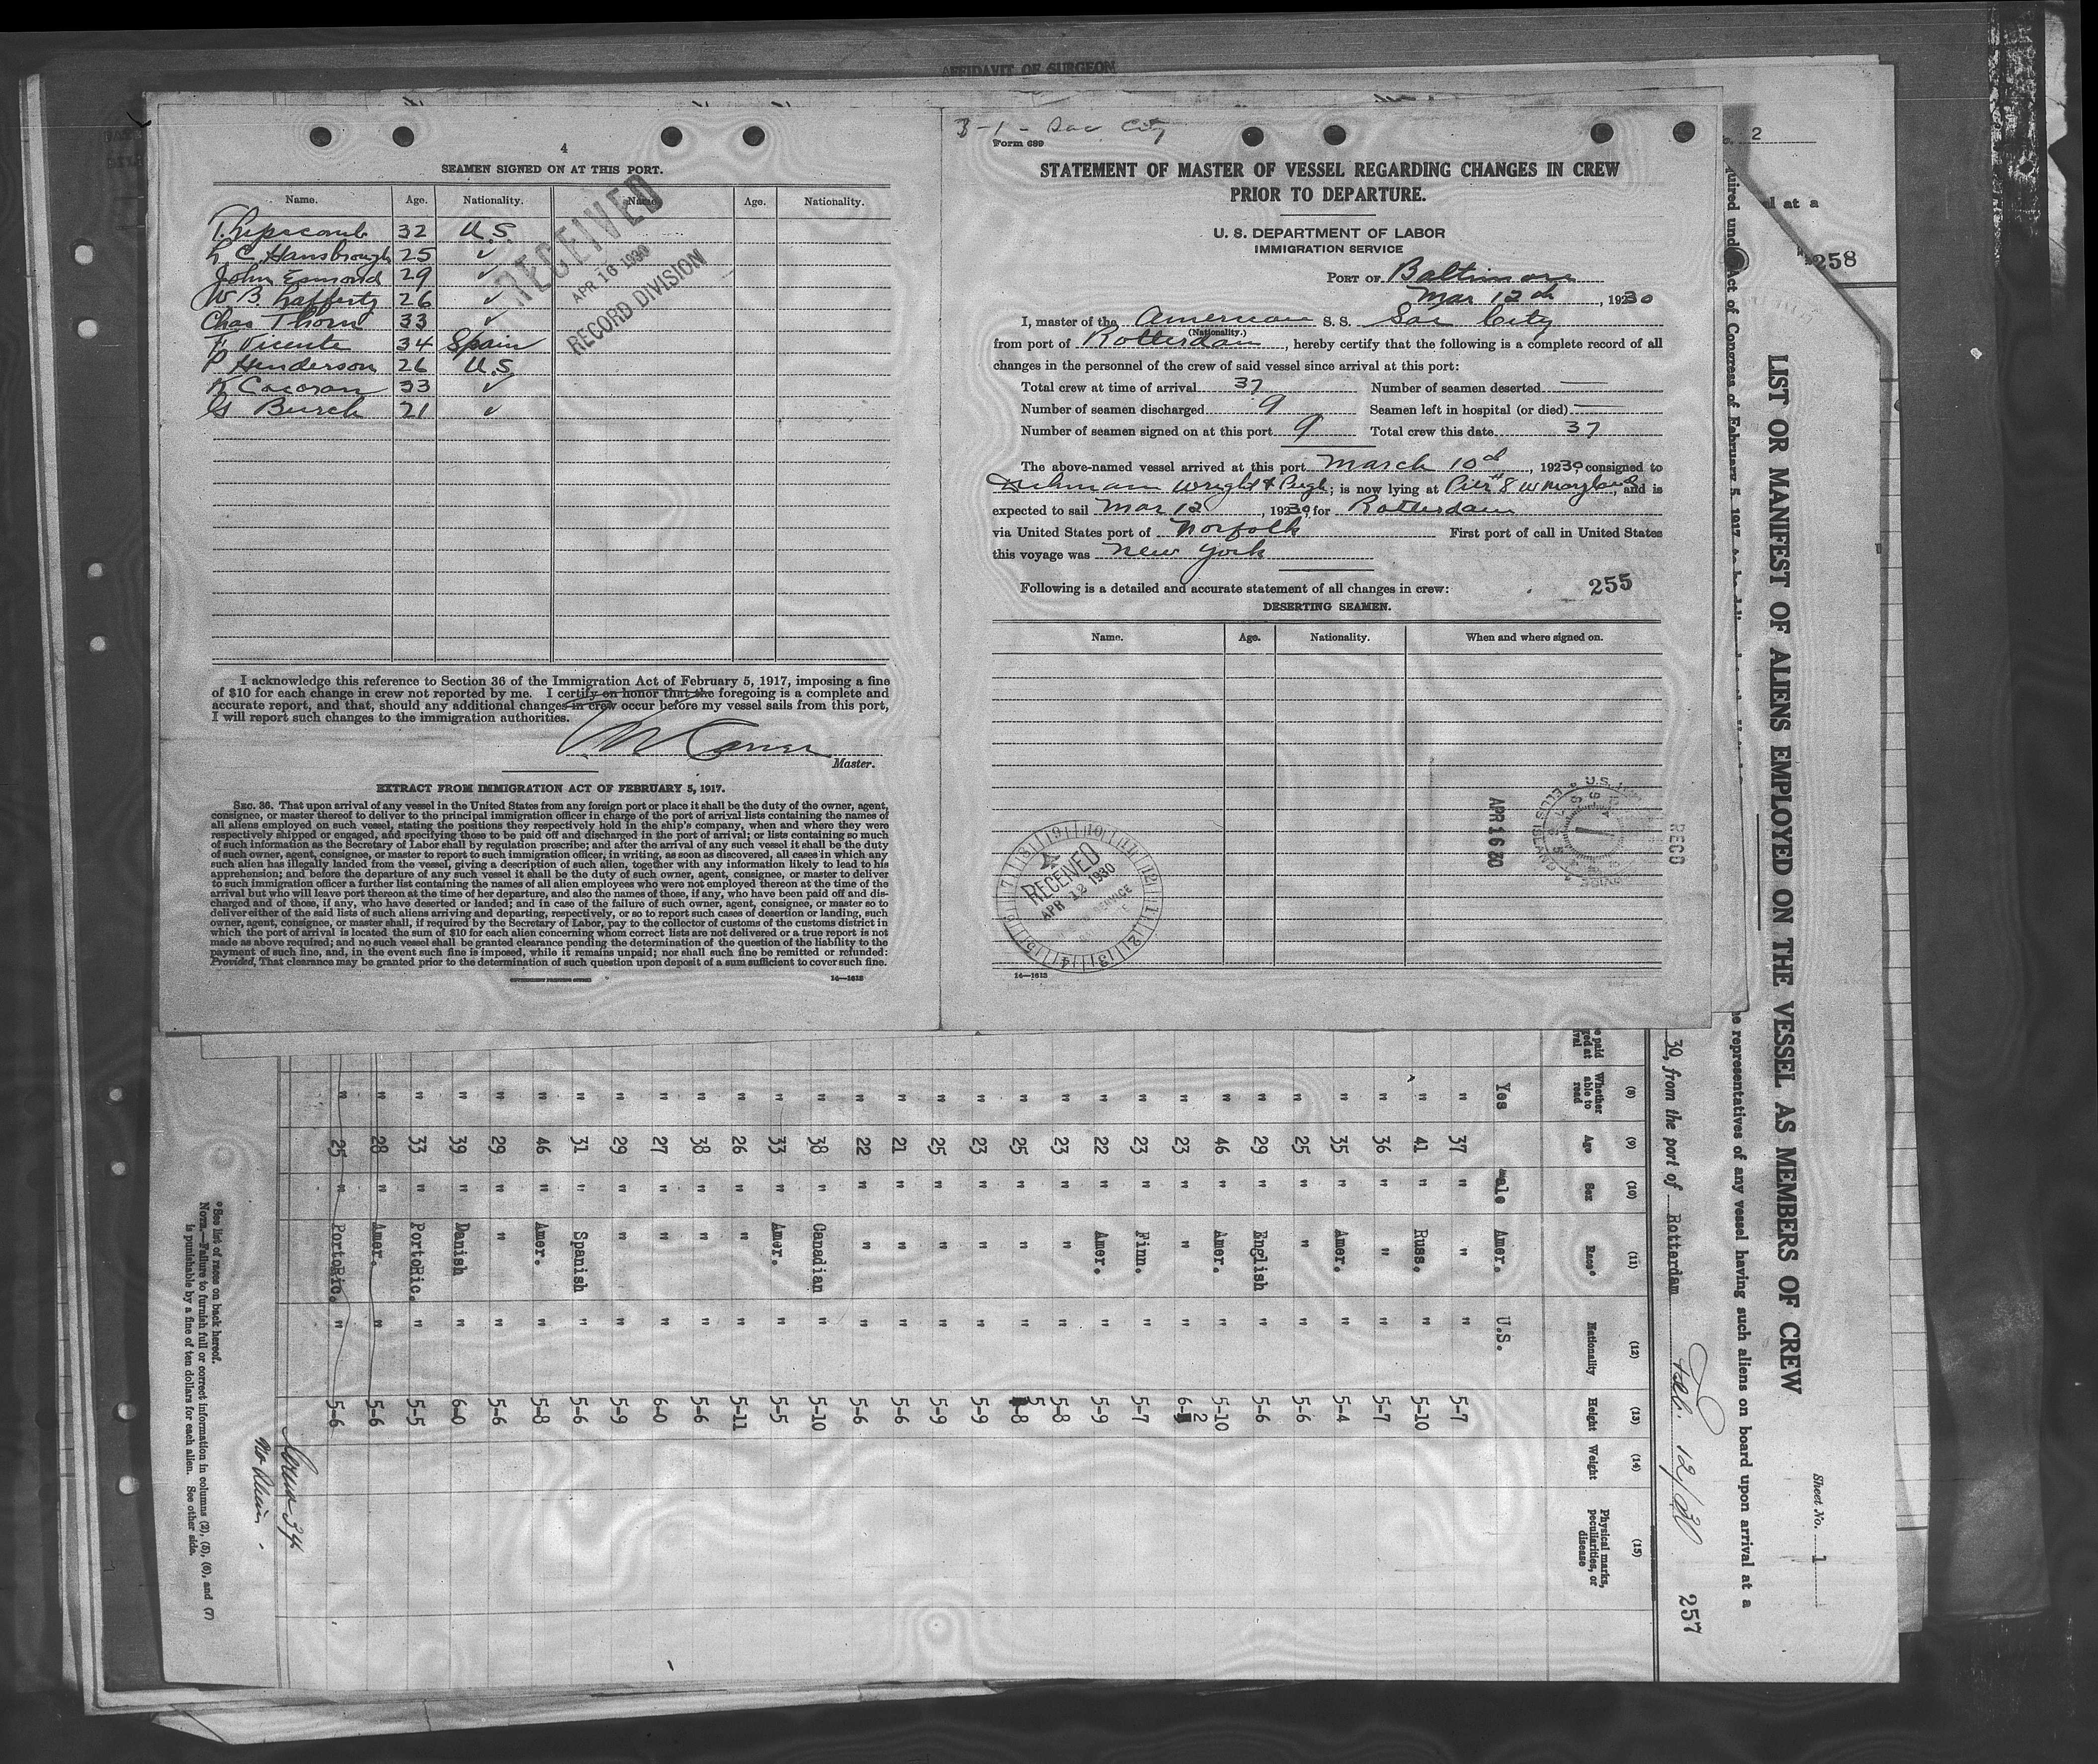 AFFIDAVIT OF SURGEON
4
SEAMEN SIGNED ON AT THIS PORT.
Name. Age. Nationality. Name. Age. Nationality.
T. Lipscomb 32 U.S.
L C Hansbrough 25 ✓
John Esmond 29 ✓
W B. Lafferty 26 ✓
Chas Thorn 33 ✓
F Vicente 34 Spain
P Henderson 26 U.S
K Cocoran 33 ✓
G Burch 21 ✓
RECEIVED
APR 16 1930
RECORD DIVISION
I acknowledge this reference to Section 36 of the Immigration Act of February 5, 1917, imposing a fine
of $10 for each change in crew not reported by me. I certify on honor that the foregoing is a complete and
accurate report, and that, should any additional changes in crew occur before my vessel sails from this port,
I will report such changes to the immigration authorities.
Master.
EXTRACT FROM IMMIGRATION ACT OF FEBRUARY 5, 1917.
SEC. 36. That upon arrival of any vessel in the United States from any foreign port or place it shall be the duty of the owner, agent,
consignee, or master thereof to deliver to the principal immigration officer in charge of the port of arrival lists containing the names of
all aliens employed on such vessel, stating the positions they respectively hold in the ship's company, when and where they were
respectively shipped or engaged, and specifying those to be paid off and discharged in the port of arrival; or lists containing so much
of such information as the Secretary of Labor shall by regulation prescribe; and after the arrival of any such vessel it shall be the duty
of such owner, agent, consignee, or master to report to such immigration officer, in writing, as soon as discovered, all cases in which any
such alien has illegally landed from the vessel, giving a description of such alien, together with any information likely to lead to his
apprehension; and before the departure of any such vessel it shall be the duty of such owner, agent, consignee, or master to deliver
to such immigration officer a further list containing the names of all alien employees who were not employed thereon at the time of the
arrival but who will leave port thereon at the time of her departure, and also the names of those, if any, who have been paid off and dis-
charged and of those, if any, who have deserted or landed; and in case of the failure of such owner, agent, consignee, or master so to
deliver either of the said lists of such aliens arriving and departing, respectively, or so to report such cases of desertion or landing, such
owner, agent, consignee, or master shall, if required by the Secretary of Labor, pay to the collector of customs of the customs district in
which the port of arrival is located the sum of $10 for each alien concerning whom correct lists are not delivered or a true report is not
made as above required; and no such vessel shall be granted clearance pending the determination of the question of the liability to the
payment of such fine, and, in the event such fine is imposed, while it remains unpaid; nor shall such fine be remitted or refunded:
Provided, That clearance may be granted prior to the determination of such question upon deposit of a sum sufficient to cover such fine.
GOVERNMENT PRINTING OFFICE 14—1613
3-1- Sac City
Form 689
STATEMENT OF MASTER OF VESSEL REGARDING CHANGES IN CREW
PRIOR TO DEPARTURE.
U. S. DEPARTMENT OF LABOR
IMMIGRATION SERVICE
PORT OF Baltimore
Mar 12th, 1930
I, master of the American S. S. Sac City
(Nationality.)
from port of Rotterdam, hereby certify that the following is a complete record of all
changes in the personnel of the crew of said vessel since arrival at this port:
Total crew at time of arrival 37 Number of seamen deserted —
Number of seamen discharged 9 Seamen left in hospital (or died) —
Number of seamen signed on at this port 9 Total crew this date 37
The above-named vessel arrived at this port March 10th, 1930, consigned to
Dichmann Wright & Pugh; is now lying at Pier #8 W Maryland, and is
expected to sail Mar 12, 1930, for Rotterdam
via United States port of Norfolk First port of call in United States
this voyage was New York
Following is a detailed and accurate statement of all changes in crew: 255
DESERTING SEAMEN.
Name. Age. Nationality. When and where signed on.
RECEIVED
APR 12 1930
APR 16 30
RECD
14—1613
2
258
LIST OR MANIFEST OF ALIENS EMPLOYED ON THE VESSEL AS MEMBERS OF CREW
Sheet No. 1
quired under Act of Congress of February 5, 1917
he representatives of any vessel having such aliens on board upon arrival at a
30, from the port of Rotterdam Feb. 12/30 257
(8) (9) (10) (11) (12) (13) (14) (15)
Whether able to read Age Sex Race* Nationality Height Weight Physical marks, peculiarities, or disease
Yes ale Amer. U.S.
" 37 " " " 5-7
" 41 " Russ. " 5-10
" 36 " " " 5-7
" 35 " Amer. " 5-4
" 25 " " " 5-6
" 29 " English " 5-6
" 46 " Amer. " 5-10
" 23 " " " 6-2
" 23 " Finn. " 5-7
" 22 " Amer. " 5-9
" 23 " " " 5-8
" 25 " " " 5-8
" 23 " " " 5-9
" 25 " " " 5-9
" 21 " " " 5-6
" 22 " " " 5-6
" 38 " Canadian " 5-10
" 33 " Amer. " 5-5
" 26 " " " 5-11
" 38 " " " 5-6
" 27 " " " 6-0
" 29 " " " 5-9
" 31 " Spanish " 5-6
" 46 " Amer. " 5-8
" 29 " " " 5-6
" 39 " Danish " 6-0
" 33 " PortoRic. " 5-5
" 28 " Amer. " 5-6
" 25 " PortoRic. " 5-6
*See list of races on back hereof.
NOTE.—Failure to furnish full or correct information in columns (2), (5), (6), and (7)
is punishable by a fine of ten dollars for each alien. See other side.